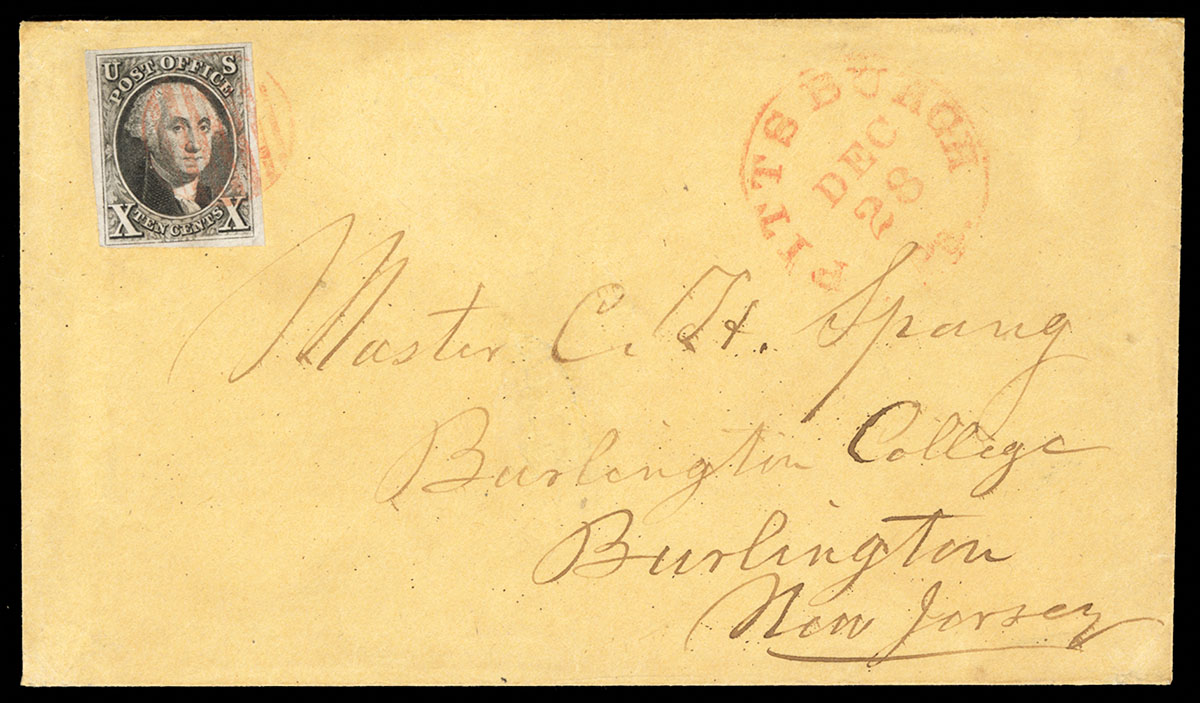 U S
POST OFFICE
X TEN CENTS X
PITTSBURGH Pa
DEC
28
Master C. H. Spang
Burlington College
Burlington
New Jersey